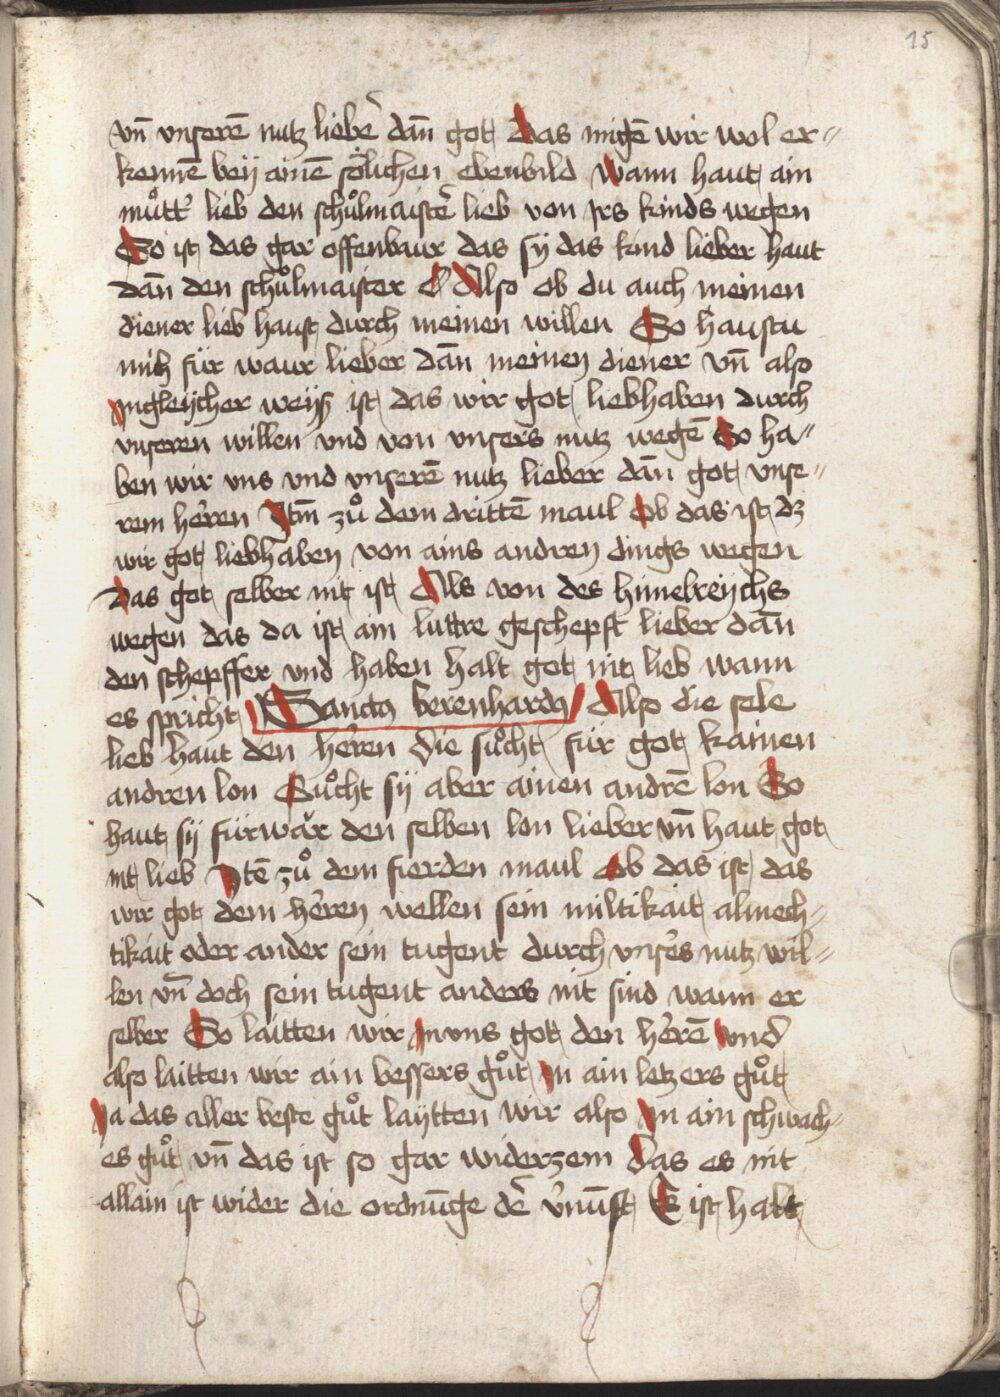 15
vn̄ vnserē nutz liebe᷑ dan̄ got Das migē wir wol er=
kennē beÿ ainē sölichen ebenbild Wann haut ain
mu̍tt᷑ lieb den schůlmaiste᷑ lieb von irs kinds wegen
So ist das gar offenbaur das sÿ das kind lieber haut
dan̄ den schůlmaister Also ob du auch meinen
diener lieb haust durch meinen willen So haustu
mich für waur lieber dan̄ meinen diener vn̄ also
Ingleÿcher weÿß ist das wir got liebhaben durch
vnseren willen vnd von vnsers nutz wegē So ha=
ben wir vns vnd vnserē nutz lieber dan̄ got vnse=
rem herren Itm̄ zů dem drittē maul Ob das ist dz
wir got liebhaben von ains andren dings wegen
das got selber nit ist Als von des himelreÿchs
wegen das da ist ain luttre geschepft lieber dan̄
den schepffer vnd haben halt got nit lieb wann
es spricht Sanctus berenhardus Also die sele
lieb haut den herren die sůcht für got kainen
andren lon Sůcht sÿ aber ainen andrē lon So
haut sÿ fürwar den selben lon lieber vn̄ haut got
nit lieb Itē zů dem fierden maul Ob das ist das
wir got dem herren wellen sein miltikait almech=
tikait oder ander sein tugent durch vnsers nutz wil=
len vn̄ doch sein tugent anders nit sind wann er
selber So laitten wir In vns got den herrē vnd
also laitten wir ain bessers gůt In ain letzers gůt
Ja das aller beste gůt laÿtten wir also In ain schwach=
es gůt vn̄ das ist so gar widerzem das es nit
allain ist wider die ordnūge de᷑ v᷑nūft Es ist halt